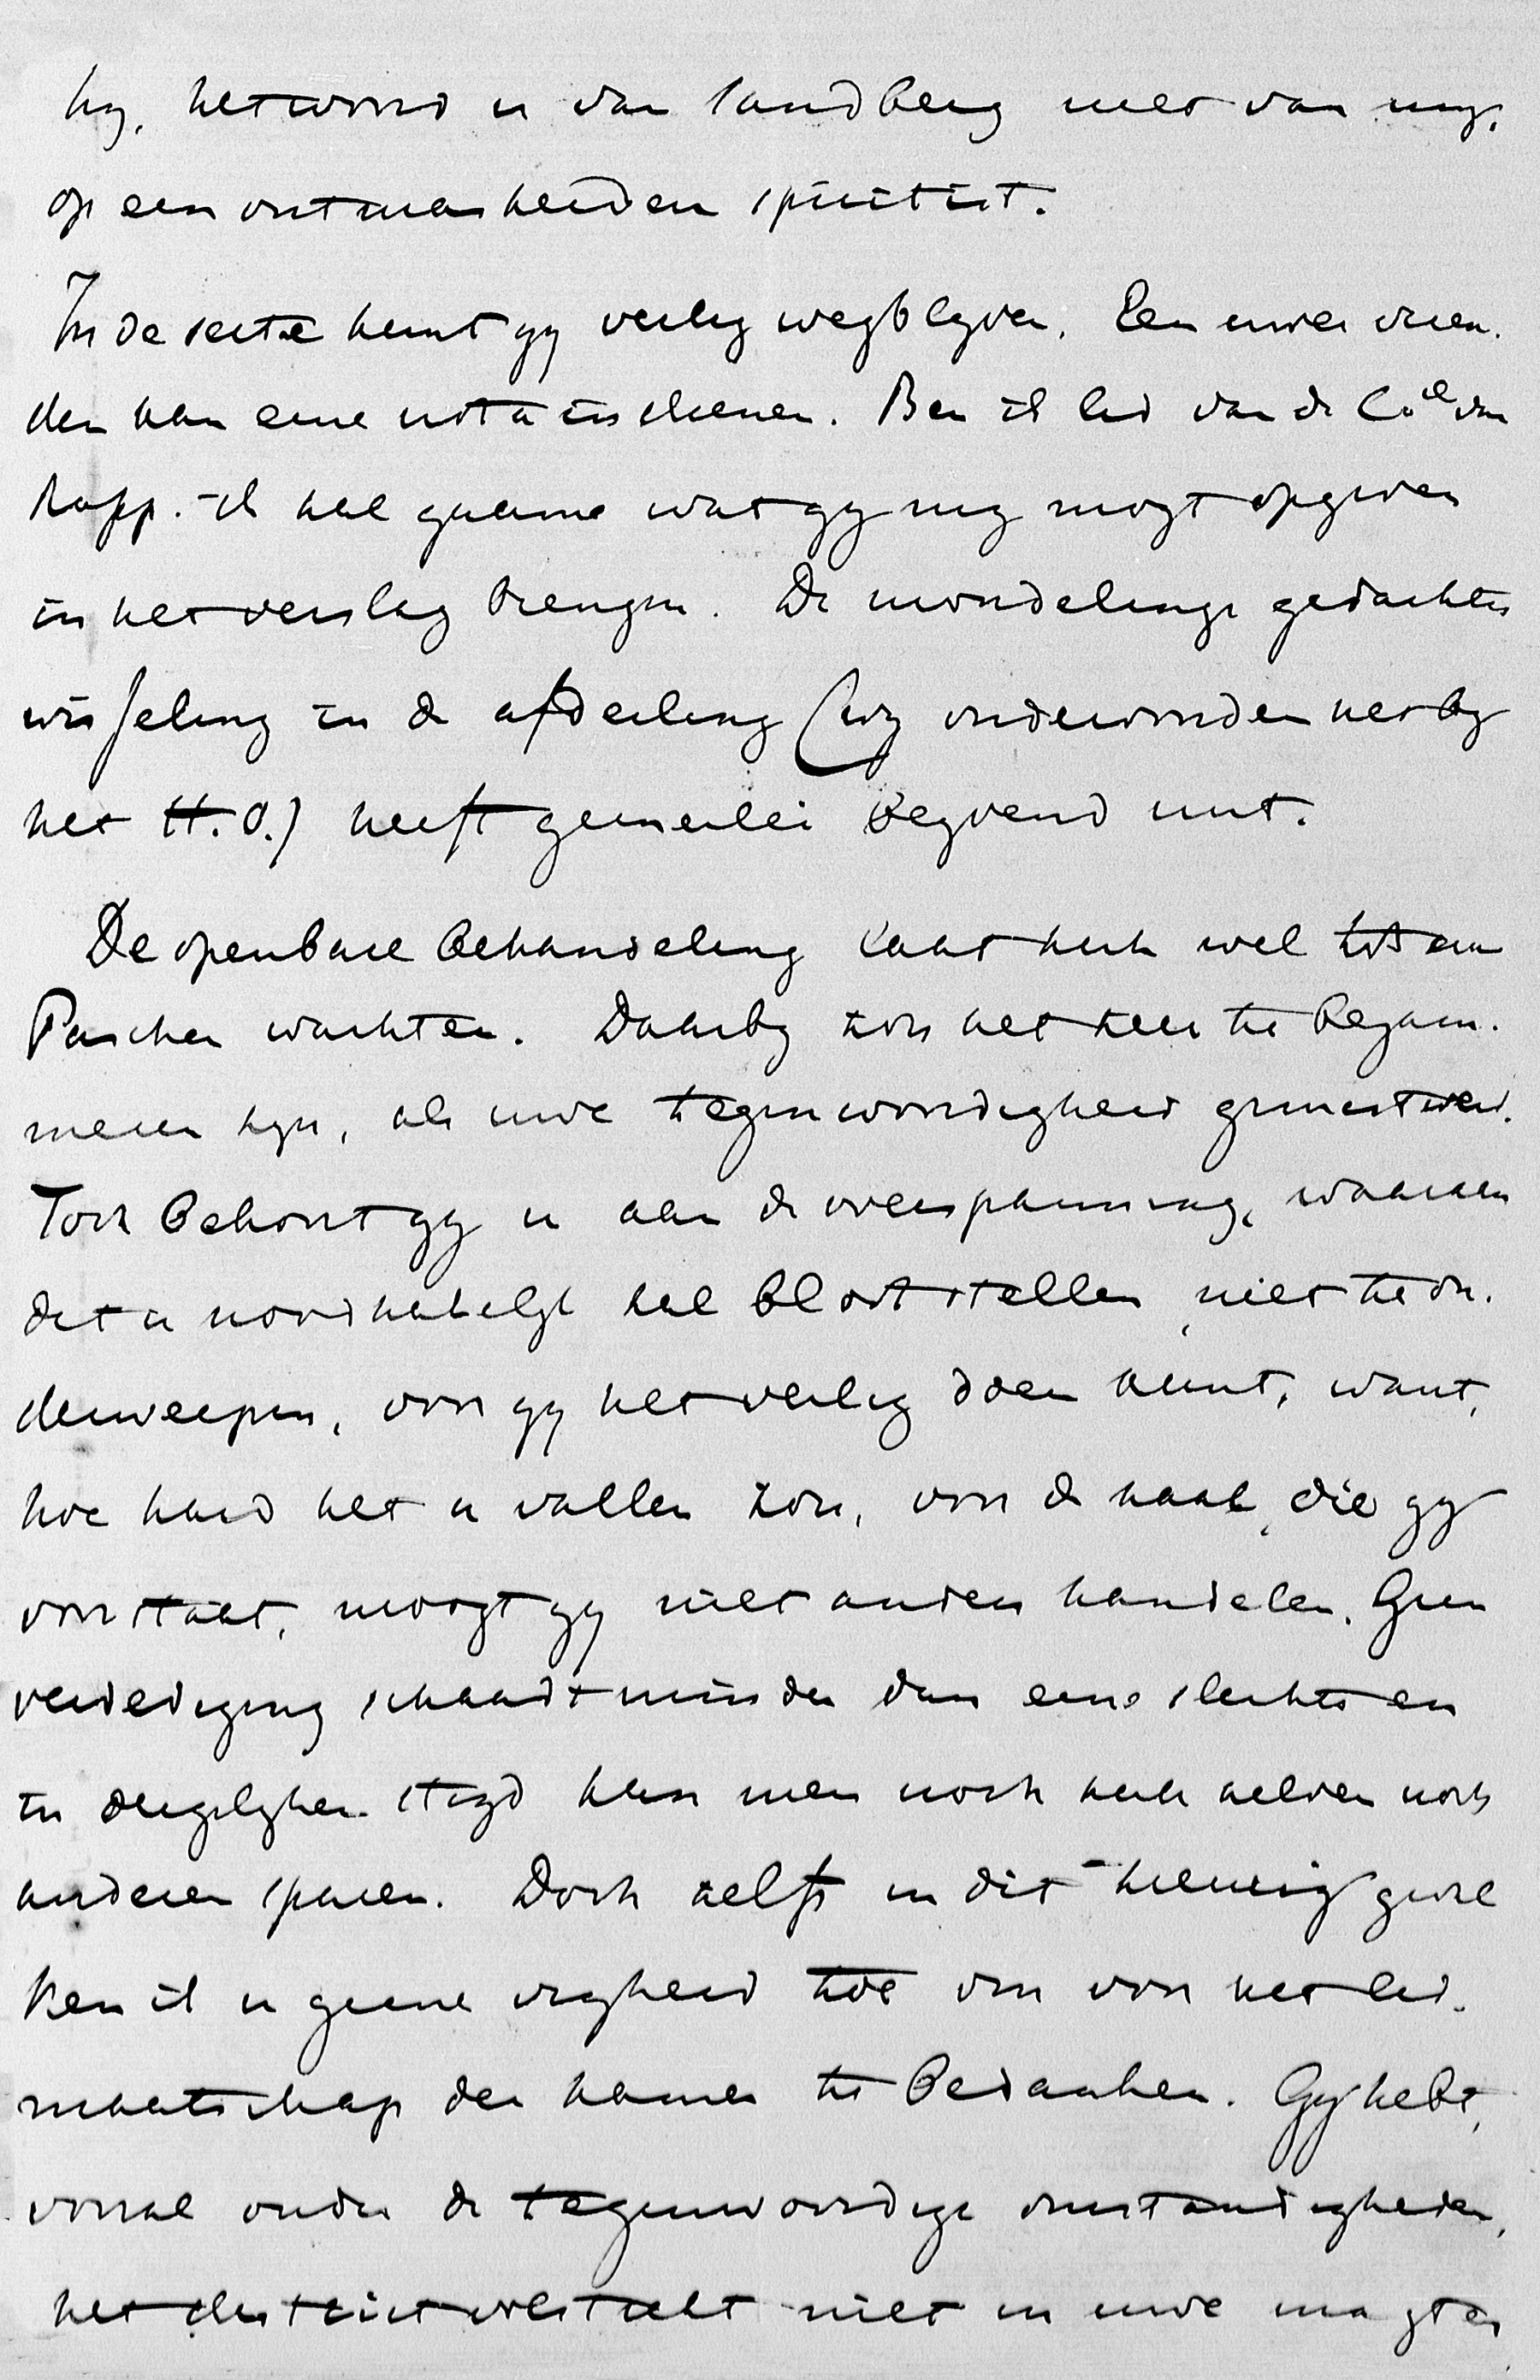 hij, het woord is van Sandberg niet van mij,
op een ontmaskerden spiritist.
In de sectie kunt gij veilig wegblijven. Een uwer vrien-
den kan eene nota indienen. Ben ik lid van de Cie van
Rapp. ik zal gaarne wat gij mij mogt opgeven
in het verslag brengen. De mondelinge gedachten
wisseling in de afdeeling (wij ondervonden het bij
het H.O.) heeft geenerlei blijvend nut.
De openbare behandeling laat zich wel tot na
Paschen wachten. Daarbij zou het zeer te bejam-
meren zijn, als uwe tegenwoordigheid gemist werd.
Toch behoort gij u aan de overspanning, waaraan
dat u noodzakelijk zal blootstellen, niet te on-
derwerpen, voor gij het veilig doen kunt, want,
hoe hard het u vallen zou, voor de zaak, die gij
voorstaat, moogt gij niet anders handelen. Geen
verdediging schaadt minder dan eene slechte en
in dergelijken strijd kan men noch zich zelven noch
anderen sparen. Doch zelfs in dit treurig geval
ken ik u geene vrijheid toe om voor het lid-
maatschap der kamer te bedanken. Gij hebt,
vooral onder de tegenwoordige omstandigheden,
het district volstrekt niet in uwe magt en